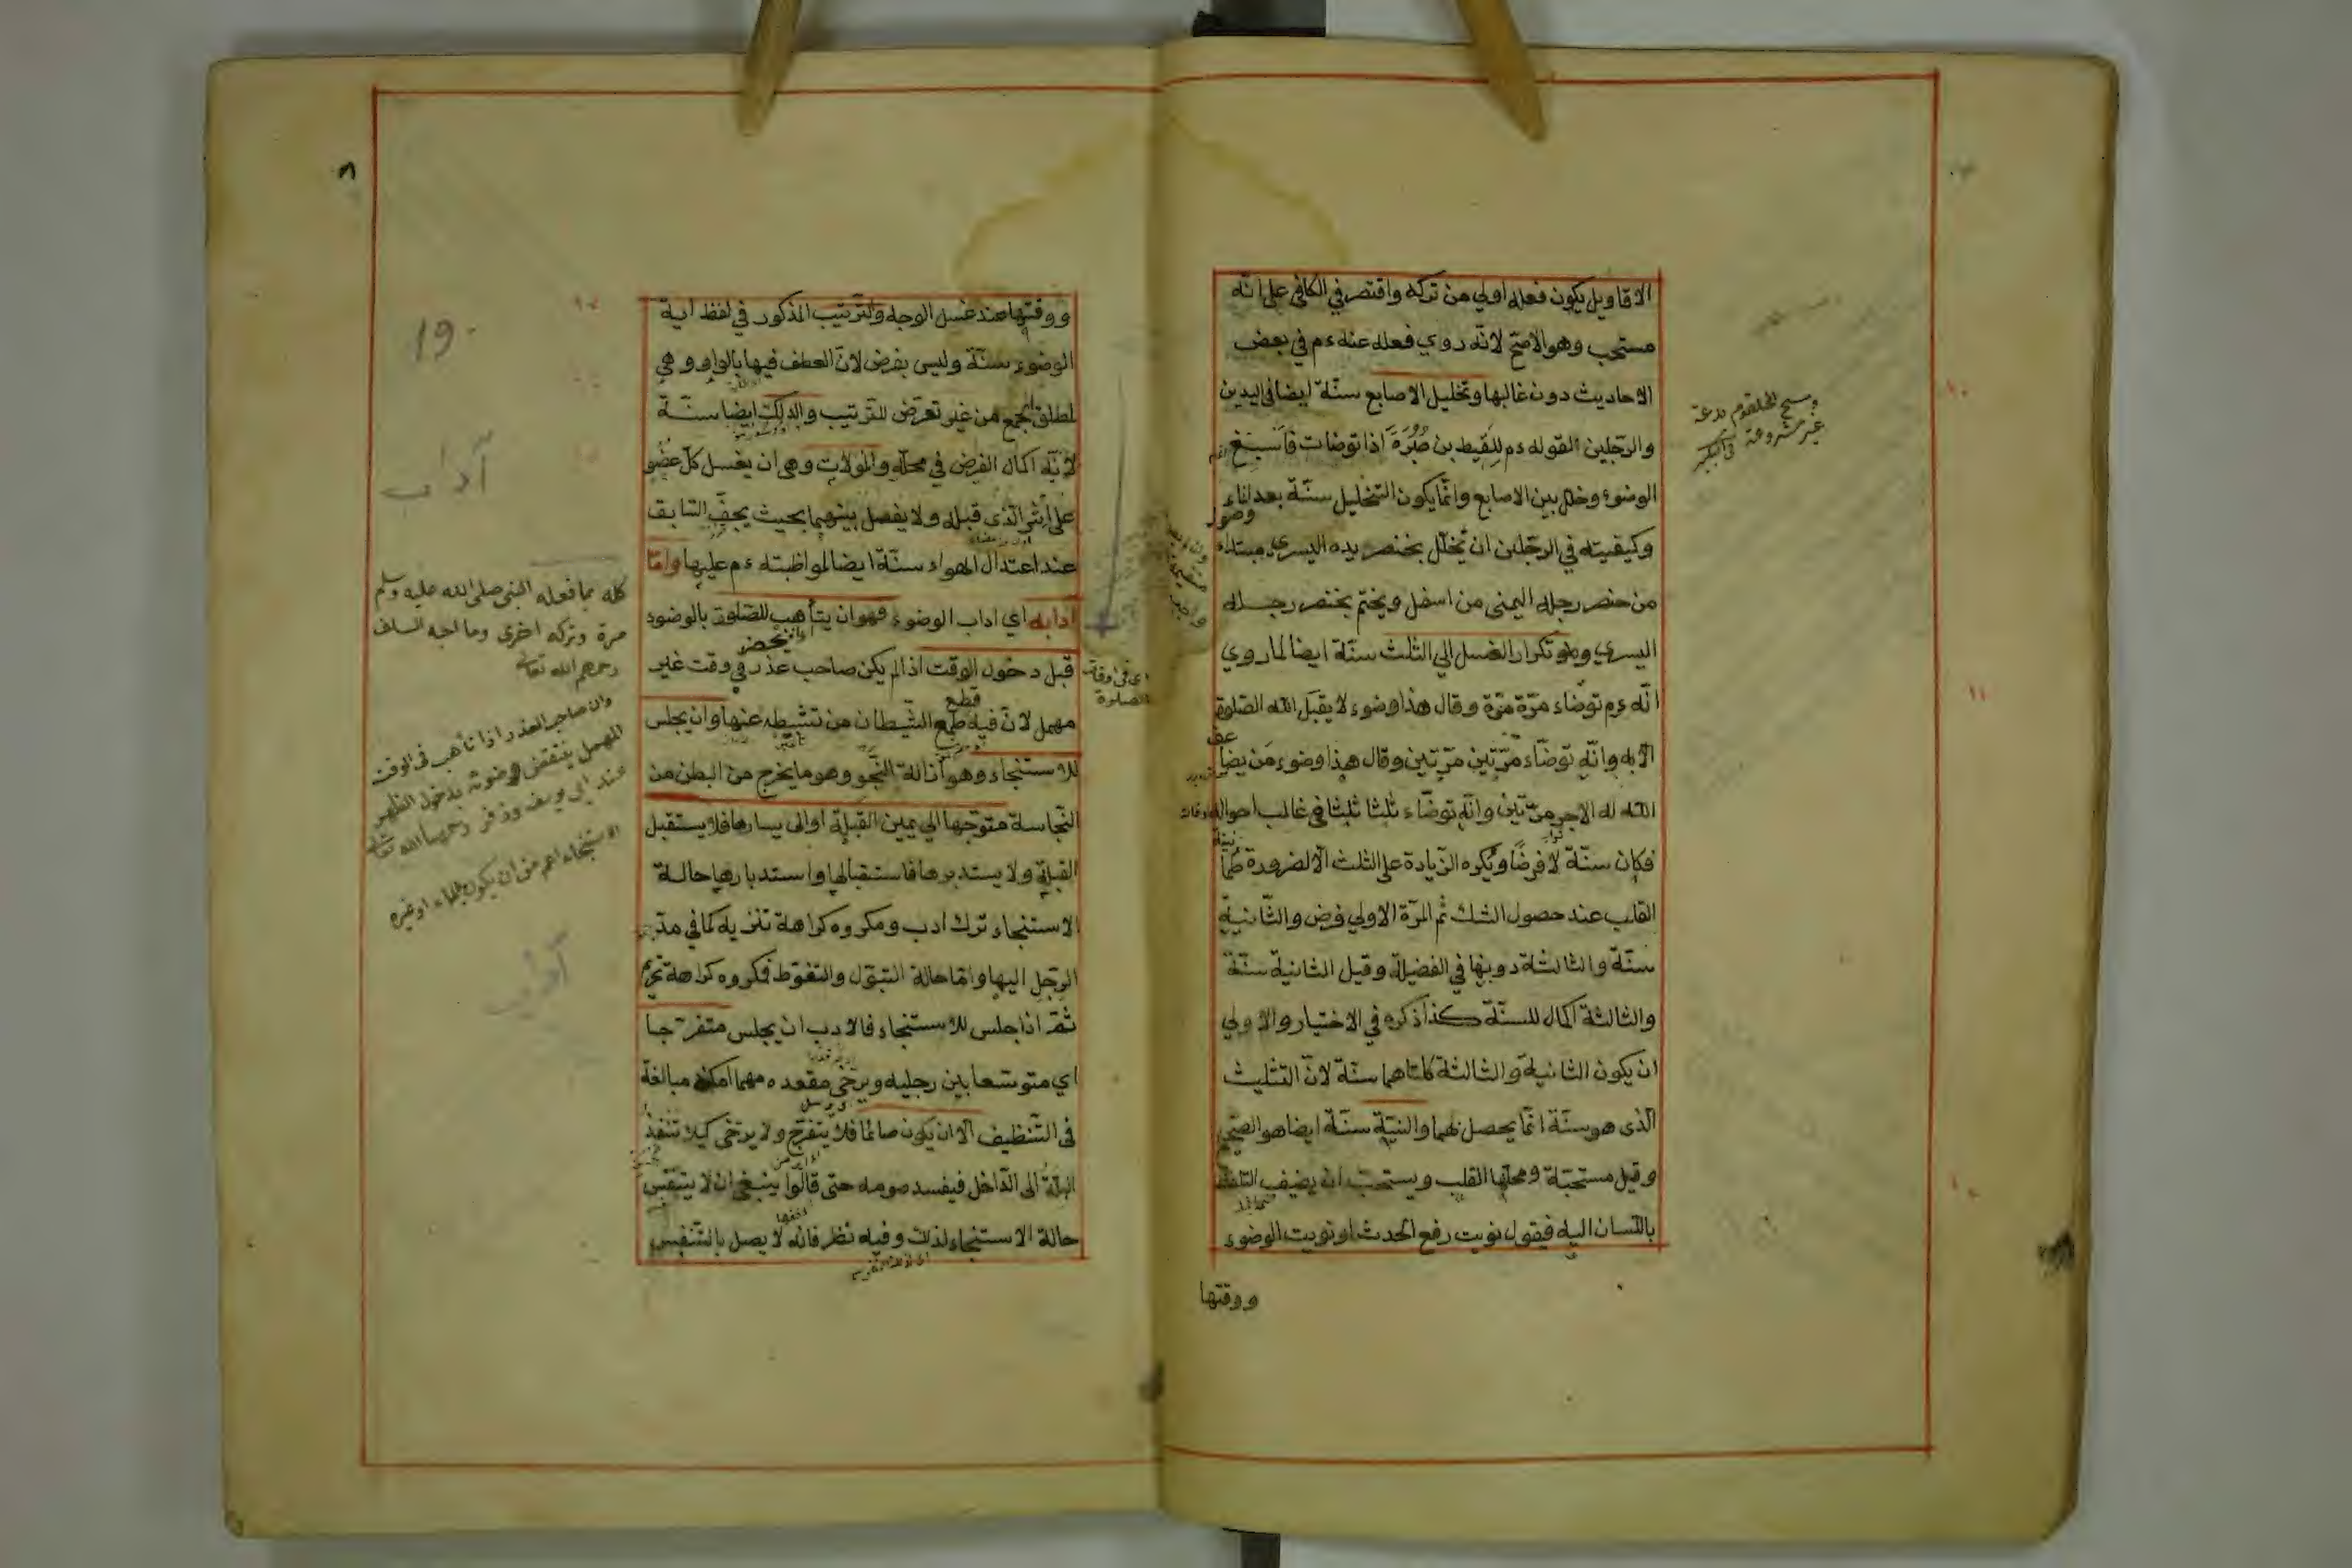 الاقاويل يكون فعله اولي من تركه واقتصر في الكافي علي انّه
مستحب وهو الاصحّ لانّه روي فعله عنه ءم في بعض
الاحاديث دون غالبها وتخليل الاصابع سنّة ايضا في اليدين
والرّجلين القوله ءم لِلَقِيط بن صُبُرَة اذا توضات فاَسبغ
الوضوء وخلل بين الاصابع وانّما يكون التخليل سنّة بعد
وصول
وكيفيته في الرّجلين ان يُخلّل بخنصر يده اليسري مبتداء
من خنصر رجله اليمنى من اسفل ويختم بخنصر رجله
اليسري وهو تكرار الغسل الي الثلث سنّة ايضا لما روي
انّه ءم توضاء مرّة مرّة وقال هذا وضوء لا يقبل الله الصّلوة
الاّ به وانّه توضّاء مرّتين مرّتين وقال هذا وضوء مَن يضا
عف
الله له الاجر مرّتين وانّه توضّاء ثلثا ثلثا في غالب احواله
فكان سنّة لا فرضًا ويُكره الزّيادة على الثلث الّا لضرورة طما
نينة
القلب عند حصول الشك ثم المرّة الاولي فرض والثّانية
سنّة والثالثة دونها في الفضيلة وقيل الثانية سنّة
والثالثة اكمال للسنّة كذا ذكره في الاختيار والاولي
ان يكون الثانية والثالثة كلتاهما سنّة لانّ التثليث
الّذى هو سنّة انّما يحصل بهما والنيّة سنّة ايضا هو الصّحيح
وقيل مستحبّة ومحلّها القلب ويستحبّ ان يضيف التلفظ
باللّسان اليه فيقول نويت رفع الحدث او نويت الوضوء
ووقتها
ومسح الحلقوم بدعة
غير مشروعة
ووقتها عند غسل الوجه والترتيب المذكور في لفظ اية
الوضوء سنّة وليس بفرض لانّ العطف فيها بالواو وهي
لمطلق الجمع من غير تعرّض للترتيب والدلك ايضا سنّة
لانّه اكمال الفرض في محلّه والمولات وهي ان يغسل كلّ عضو
على أثر الّذى قبله ولا يفصل بينهما بحيث يجفّ السّابق
عند اعتدال الهواء سنّة ايضا لمواظبته ءم عليها وامّا
ادابه اي اداب الوضوء فهو ان يتأهب للصّلوة بالوضوء
قبل دخول الوقت اذا لم يكن صاحب عذر في وقت غير
مهمل لانّ فيه طمع الشّيطان من تثبطه عنها وان يجلس
قطع
للاستنجاء وهو ازالة النّجو وهو ما يخرج من البطن من
النّجاسة متوجّها الي يمين القبلة او الى يسارها فلا يستقبل
القبلة ولا يستدبرها فاستقبالها واستدبارها حالة
الاستنجاء ترك ادب ومكروه كراهة تنزيه كما في مدّ
الرّجل اليها وامّا حالة التبوّل والتغوّط فمكروه كراهة تحريم
ثمّ اذا جلس للاستنجاء فالادب ان يجلس متفرّجا
اي متوسّعا بين رجليه ويرخى مقعده مهما امكنه مبالغة
فى التّنظيف الّا ان يكون صائما فلا يتفرّج ولا يرخى كيلا تنفذ
البلّة الى الدّاخل فيفسد صومه حتى قالوا ينبغى ان لا يتنفّس
حالة الاستنجاء لذلك وفيه نظر فانّه لا يصل بالتّنفّس
اى فى اوقات
الصلوة
19
آداب
كله مما فعله النبى صلى الله عليه وسلم
مرة وتركه اخرى وما احبه السلف
رحمهم الله تعالى
وان صاحب العذر اذا تأهب فى الوقت
المهمل ينتقض وضوئه بدخول الظهر
عند ابى يوسف وزفر رحمهما الله تعالى
الاستنجاء اعم من ان يكون بالماء او غيره
آداب